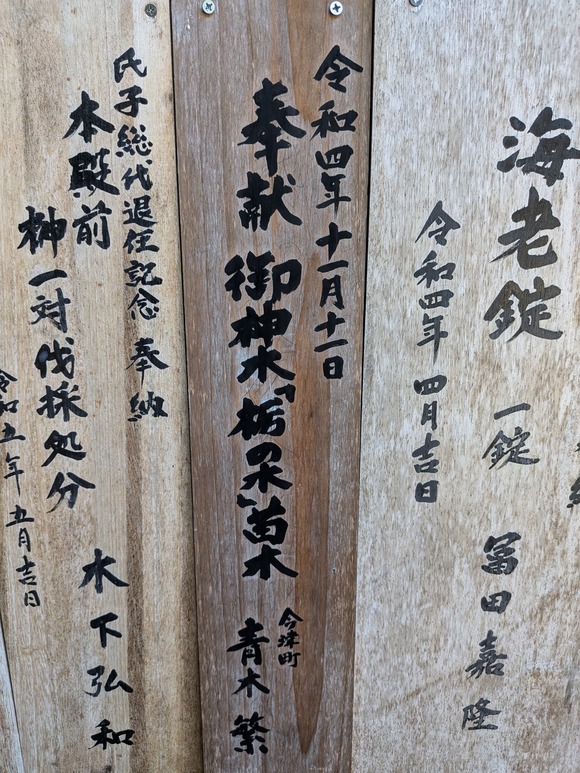 海老錠 一錠 冨田嘉隆
令和四年 四月吉日
令和四年十一月十一日
奉献 御神木「栃の木」苗木
今津町
青木 繁
氏子総代退任記念 奉納
本殿前
榊一対伐採処分
木下弘和
令和五年 五月吉日